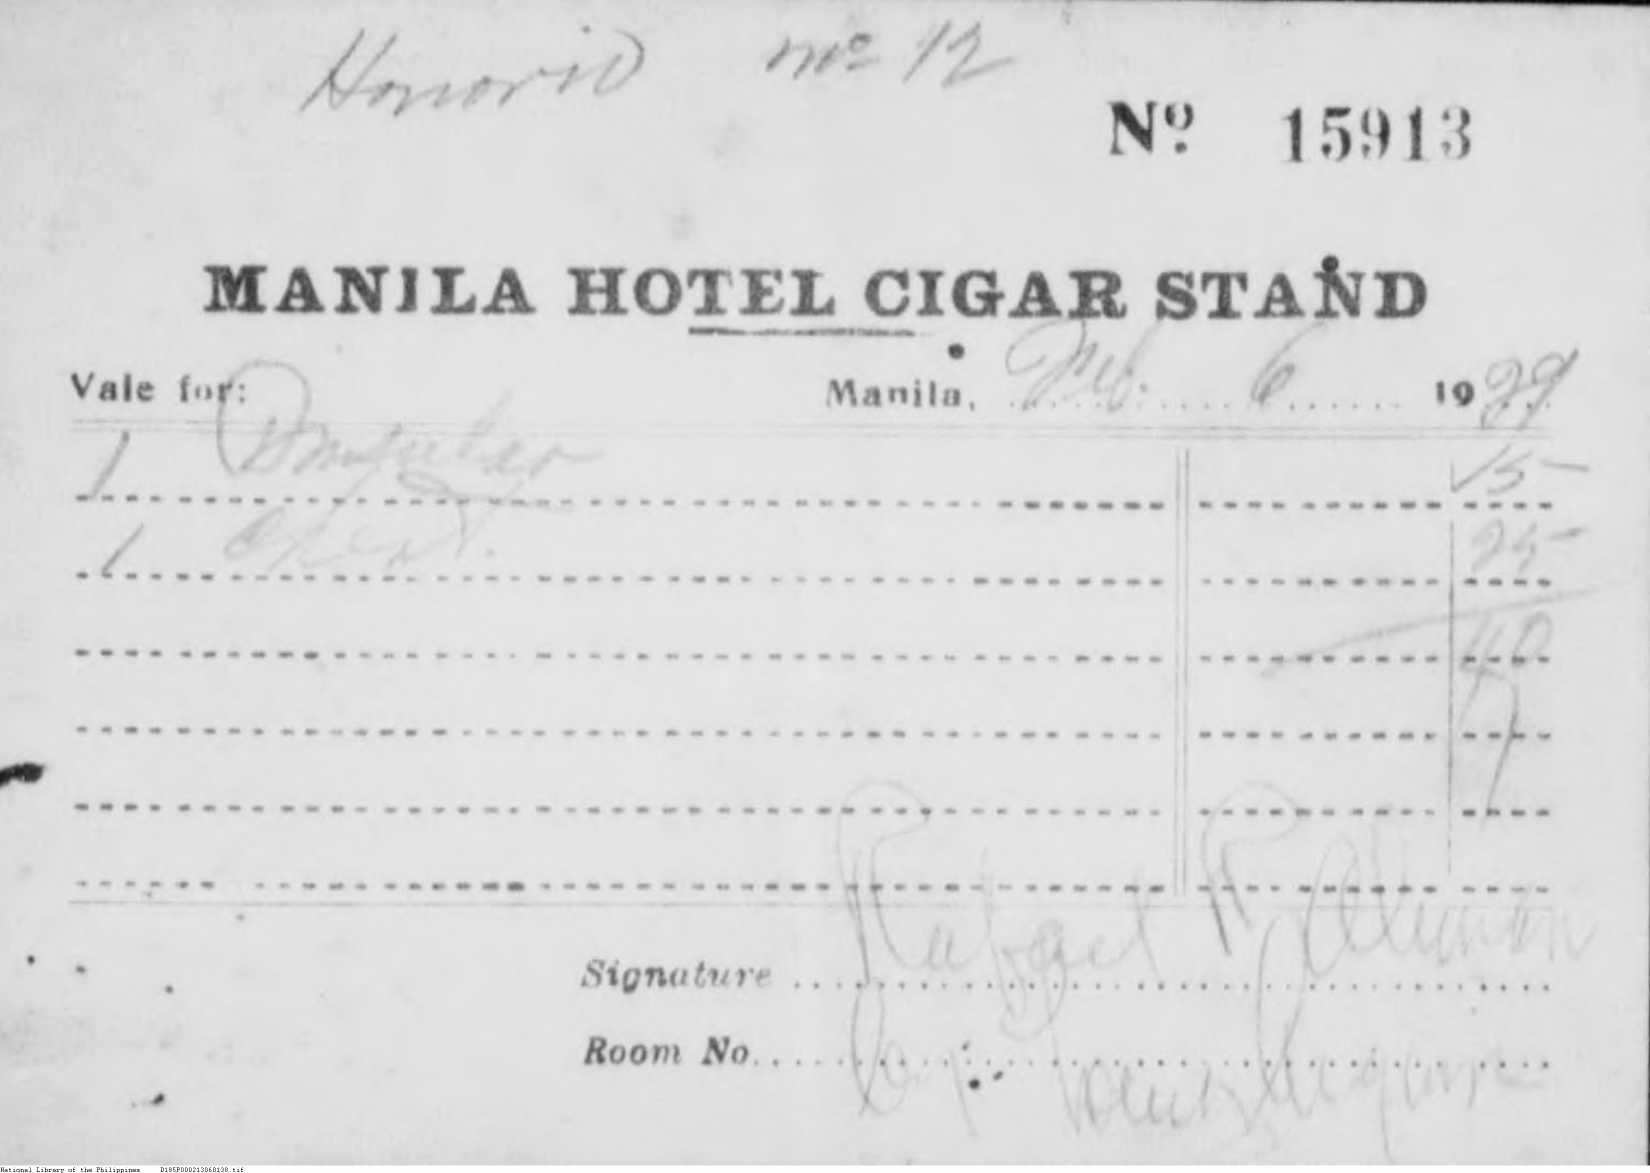 Honorio No 12
Nº 15913
MANILA HOTEL CIGAR STAND
Vale for: Manila, Feb. 6 1929
1 15
1 25
40
Signature Rafael R. Alunan
Room No. By
National Library of the Philippines D185P000213060138.tif